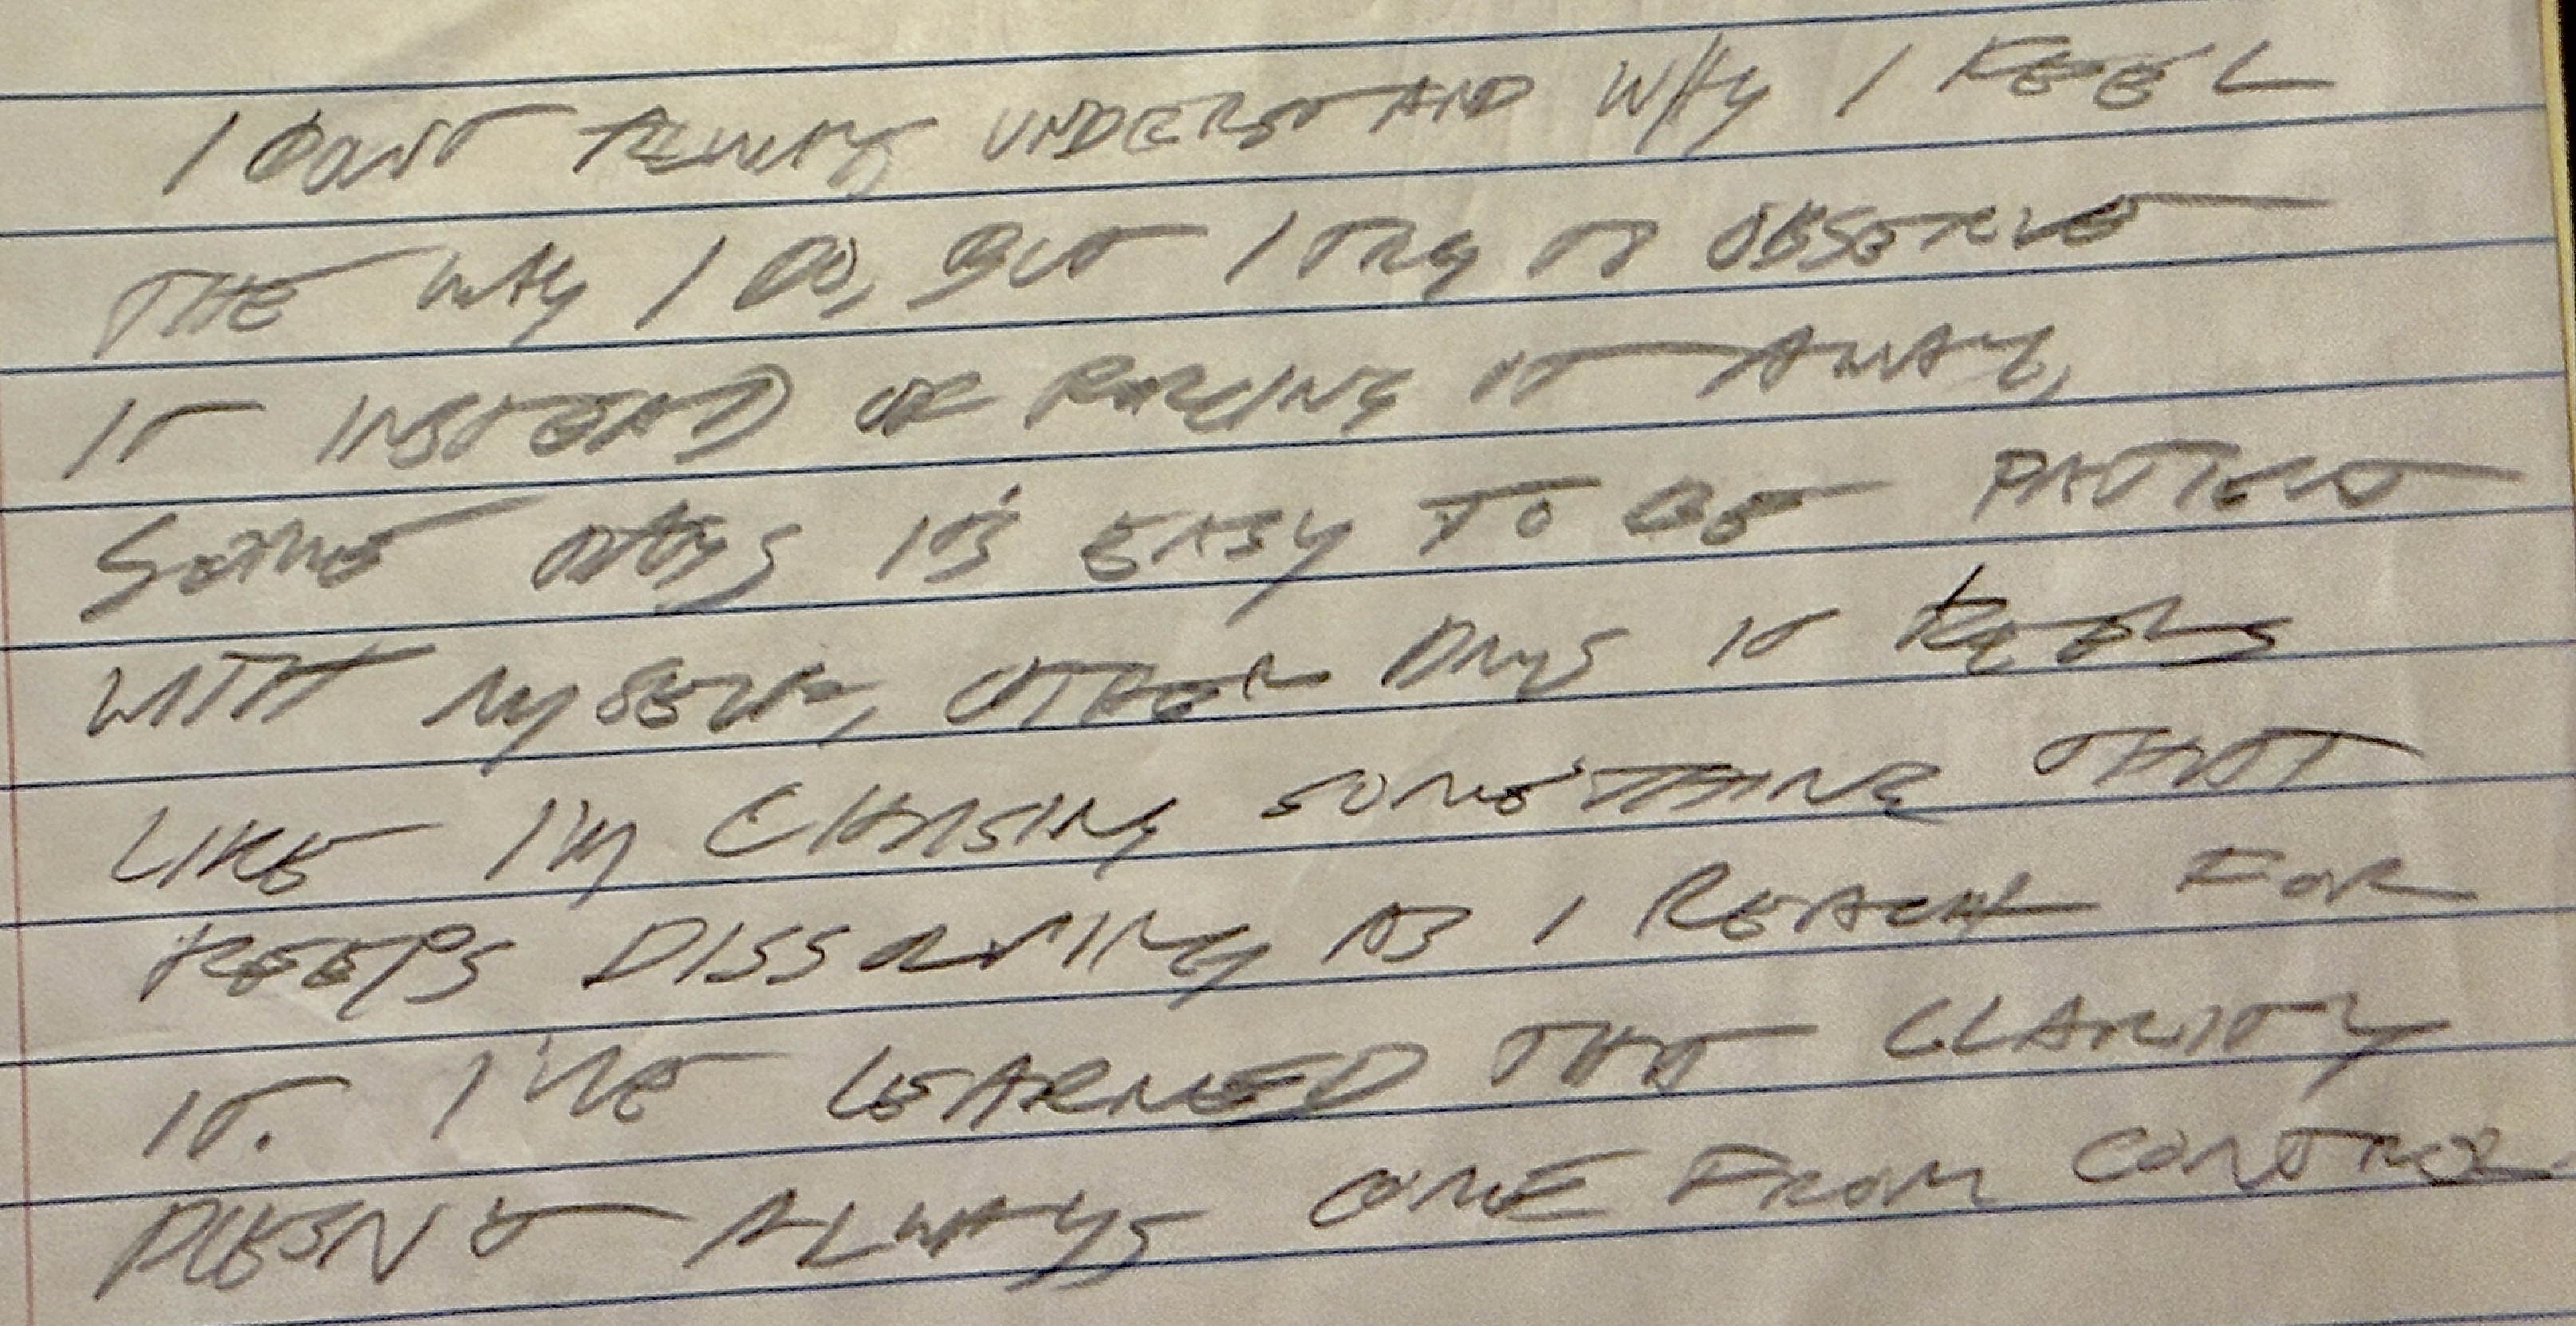 I DON'T ALWAYS UNDERSTAND WHY I FEEL
THE WAY I DO, BUT I TRY TO OBSERVE
IT INSTEAD OF FORCING IT AWAY,
SOME DAYS IT'S EASY TO BE PATIENT
WITH MYSELF, OTHER DAYS IT FEELS
LIKE I'M CHASING SOMETHING THAT
KEEPS DISSOLVING AS I REACH FOR
IT. I'VE LEARNED THAT CLARITY
DOESN'T ALWAYS COME FROM CONTROL